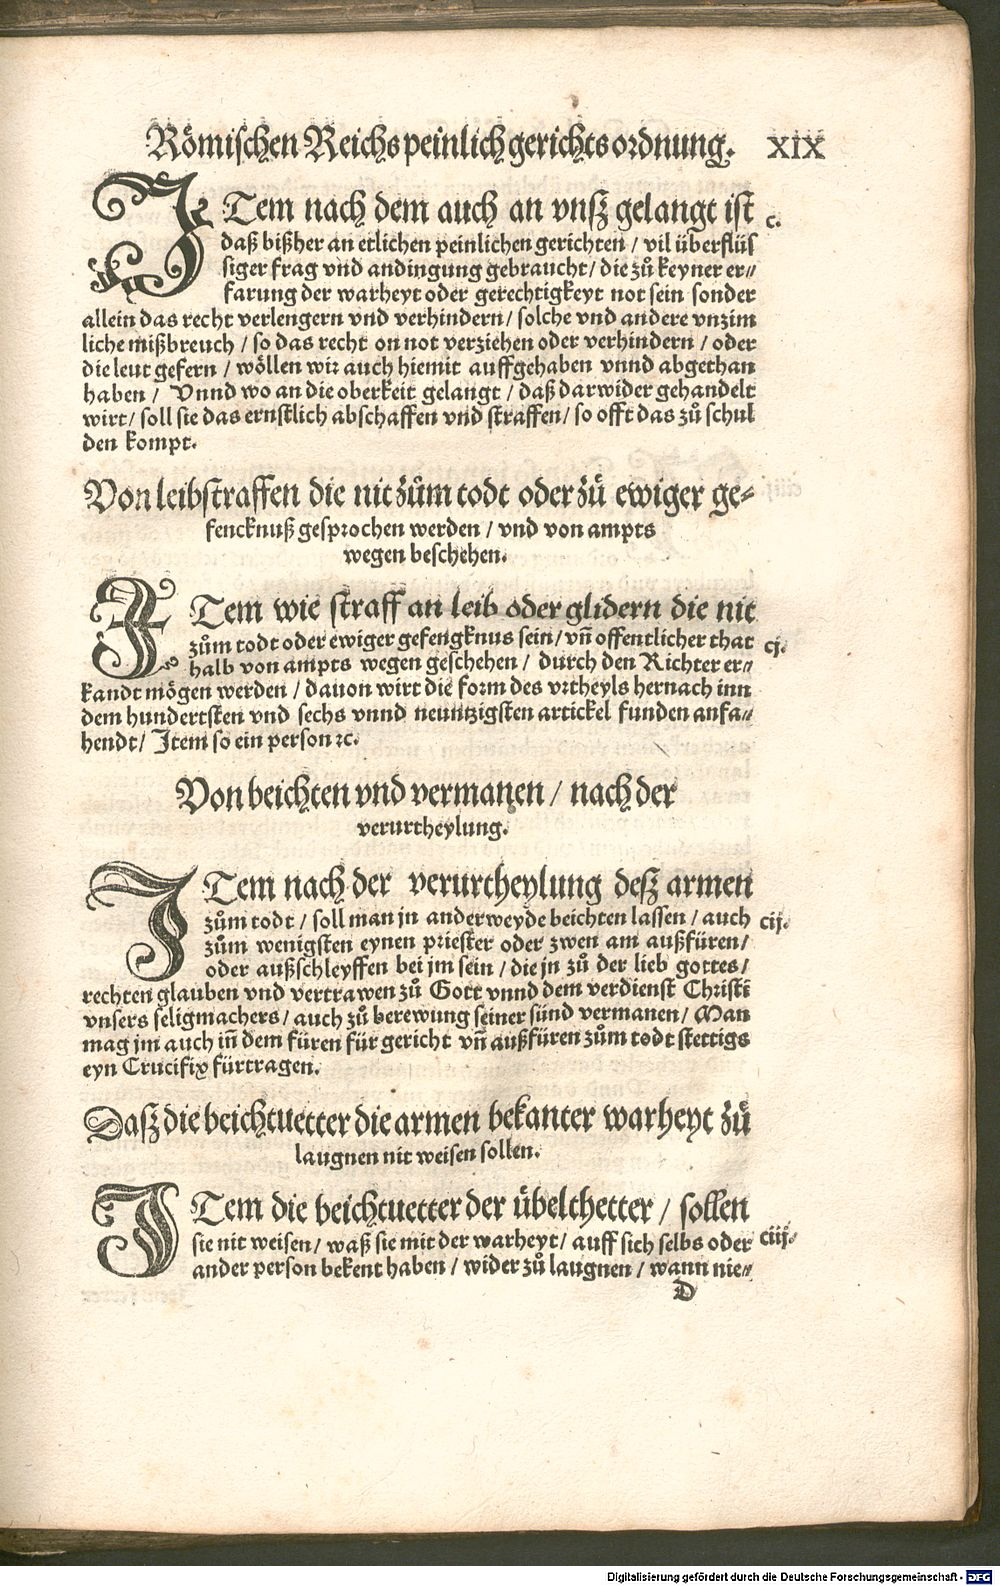 Römischen Reichs peinlich gerichts ordnung. XIX
ITem nach dem auch an vnsz gelangt ist c.
daß bißher an etlichen peinlichen gerichten / vil überflüs
siger frag vnd andingung gebraucht / die zů keyner er⸗
farung der warheyt oder gerechtigkeyt not sein sonder
allein das recht verlengern vnd verhindern / solche vnd andere vnzim
liche mißbreuch / so das recht on not verziehen oder verhindern / oder
die leut gefern / wöllen wir auch hiemit auffgehaben vnnd abgethan
haben / Vnnd wo an die oberkeit gelangt / daß dar wider gehandelt
wirt / soll sie das ernstlich abschaffen vnd straffen / so offt das zů schul
den kompt.
Von leibstraffen die nit zům todt oder zů ewiger ge⸗
fencknuß gesprochen werden / vnd von ampts
wegen beschehen.
ITem wie straff an leib oder glidern die nit
zům todt oder ewiger gefengknus sein / vñ offentlicher that cj.
halb von ampts wegen geschehen / durch den Richter er⸗
kandt mögen werden / dauon wirt die form des vrtheyls hernach inn
dem hundertsten vnd sechs vnnd neuntzigsten artickel funden anfa⸗
hendt / Item so ein person ꝛc.
Von beichten vnd vermanen / nach der
verurtheylung.
ITem nach der verurtheylung desz armen
zům todt / soll man jn anderweyde beichten lassen / auch cij.
zům wenigsten eynen priester oder zwen am außfüren /
oder außschleyffen bei jm sein / die jn zů der lieb gottes /
rechten glauben vnd vertrawen zů Gott vnnd dem verdienst Christi
vnsers seligmachers / auch zů berewung seiner sünd vermanen / Man
mag jm auch iñ dem füren für gericht vñ außfüren zům todt stettigs
eyn Crucifix fürtragen.
Dasz die beichtuetter die armen bekanter warheyt zů
laugnen nit weisen sollen.
ITem die beichtuetter der übelthetter / sollen
sie nit weisen / waß sie mit der warheyt / auff sich selbs oder ciij.
ander person bekent haben / wider zů laugnen / wann nie⸗
D
Digitalisierung gefördert durch die Deutsche Forschungsgemeinschaft - DFG